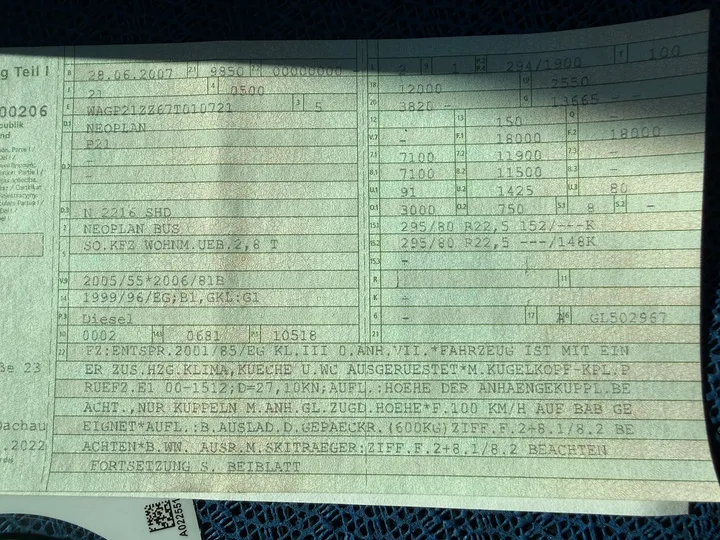 g Teil I
00206
publik
nd
ße 23
Dachau
.2022
B 28.06.2007 2.1 9850 2.2 00000000 -
J 21 4 0500
E WAGP21ZZ67T010721 3 5
D.1 NEOPLAN
P21
D.2 -
-
D.3 N 2216 SHD
2 NEOPLAN BUS
5 SO.KFZ WOHNM.UEB.2,8 T
V.9 2005/55*2006/81B
14 1999/96/EG;B1,GKL:G1
P.3 Diesel
10 0002 14.1 0681 P.1 10518
L 2 9 1 P.2 P.4 294/1900 T 100
18 12000 19 2550
20 3820 - G 13665 -
12 - 13 150 Q -
V.7 - F.1 18000 F.2 18000
7.1 7100 7.2 11900 7.3 -
8.1 7100 8.2 11500 8.3 -
U.1 91 U.2 1425 U.3 80
O.1 3000 O.2 750 S.1 8 S.2 -
15.1 295/80 R22,5 152/---K
15.2 295/80 R22,5 ---/148K
15.3 -
R 11
K -
6 - 17 16 GL502967
21
22 FZ:ENTSPR.2001/85/EG KL.III O.ANH.VII.*FAHRZEUG IST MIT EIN
ER ZUS.HZG.KLIMA,KUECHE U.WC AUSGERUESTET*M.KUGELKOPF-KPL.P
RUEFZ.E1 00-1512;D=27,10KN;AUFL.:HOEHE DER ANHAENGEKUPPL.BE
ACHT.,NUR KUPPELN M.ANH.GL.ZUGD.HOEHE*F.100 KM/H AUF BAB GE
EIGNET*AUFL.:B.AUSLAD.D.GEPAECKR.(600KG)ZIFF.F.2+8.1/8.2 BE
ACHTEN*B.WN. AUSR.M.SKITRAEGER:ZIFF.F.2+8.1/8.2 BEACHTEN
FORTSETZUNG S. BEIBLATT
A022551